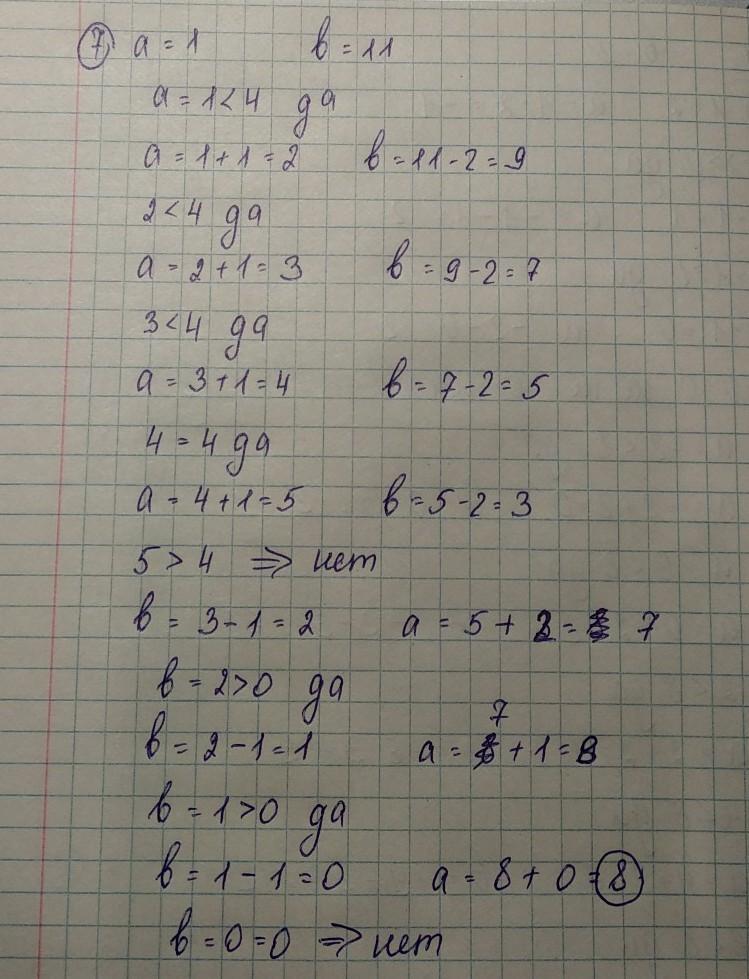 7) a = 1 b = 11
a = 1 < 4 да
a = 1 + 1 = 2 b = 11 - 2 = 9
2 < 4 да
a = 2 + 1 = 3 b = 9 - 2 = 7
3 < 4 да
a = 3 + 1 = 4 b = 7 - 2 = 5
4 = 4 да
a = 4 + 1 = 5 b = 5 - 2 = 3
5 > 4 ⇒ нет
b = 3 - 1 = 2 a = 5 + 2 = 7
b = 2 > 0 да
b = 2 - 1 = 1 a = 7 + 1 = 8
b = 1 > 0 да
b = 1 - 1 = 0 a = 8 + 0 = 8
b = 0 = 0 ⇒ нет